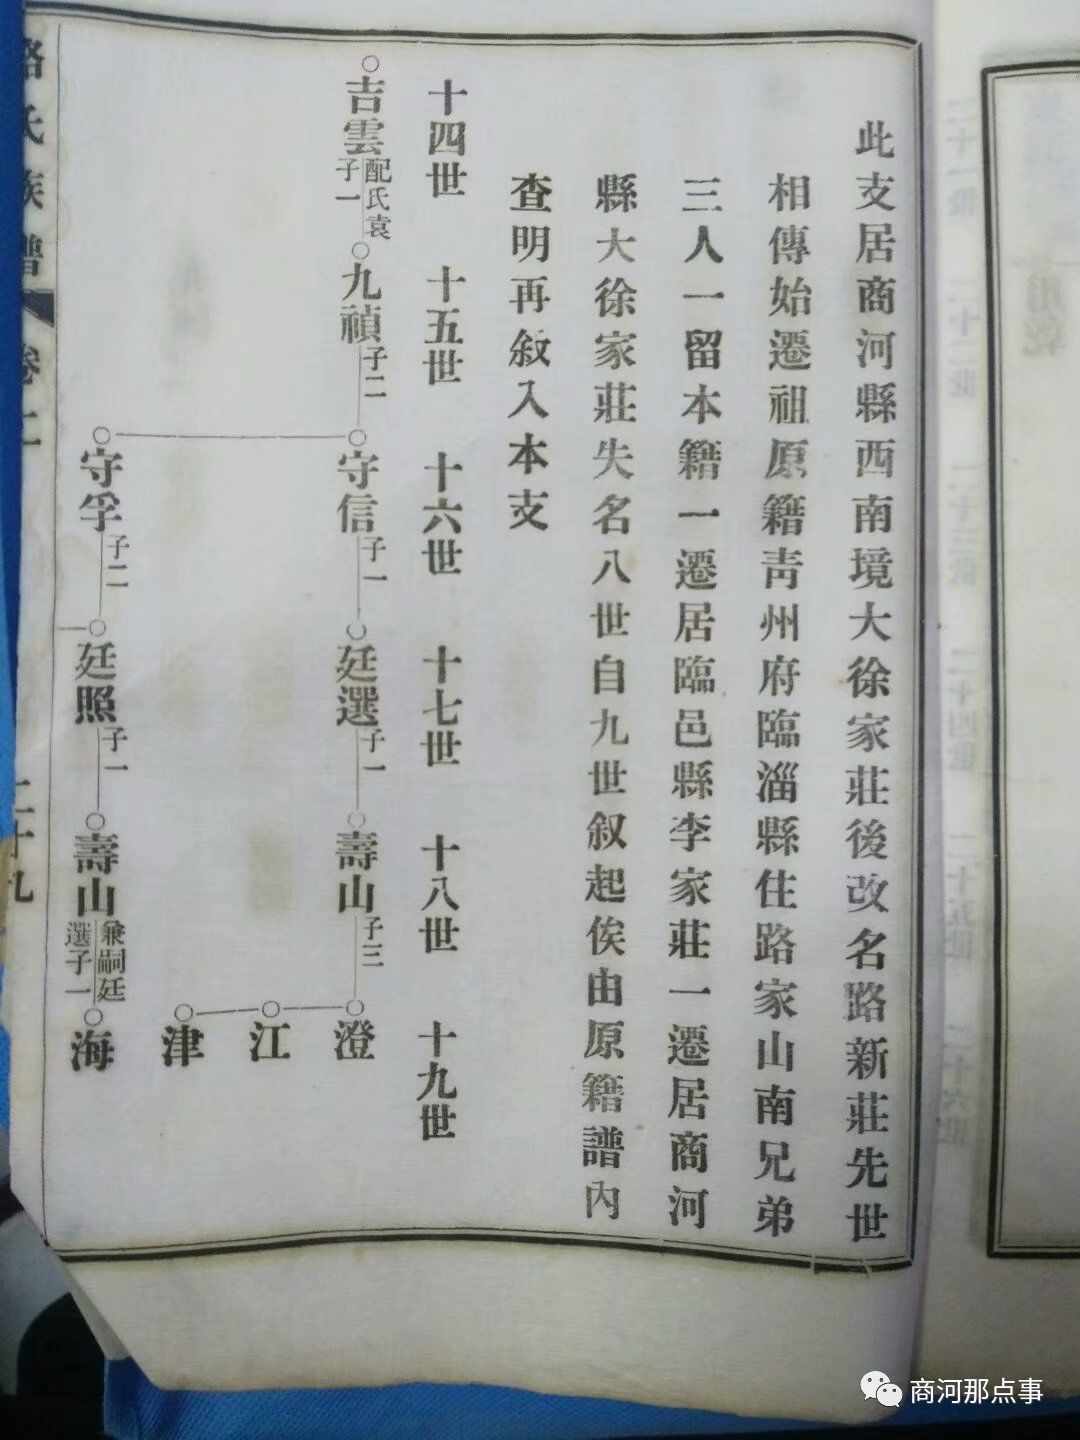 此支居商河縣西南境大徐家莊後改名路新莊先世
相傳始遷祖原籍靑州府臨淄縣住路家山南兄弟
三人一留本籍一遷居臨邑縣李家莊一遷居商河
縣大徐家莊失名八世自九世叙起俟由原籍譜內
查明再敘入本支
十四世 十五世 十六世 十七世 十八世 十九世
吉雲 配氏袁 子一 九禎 子二 守信 子一 廷選 子一 壽山 子三 澄
江
津
守孚 子二 廷照 子一 壽山 兼嗣廷選子一 海
路氏族譜 卷 二十九
商河那点事